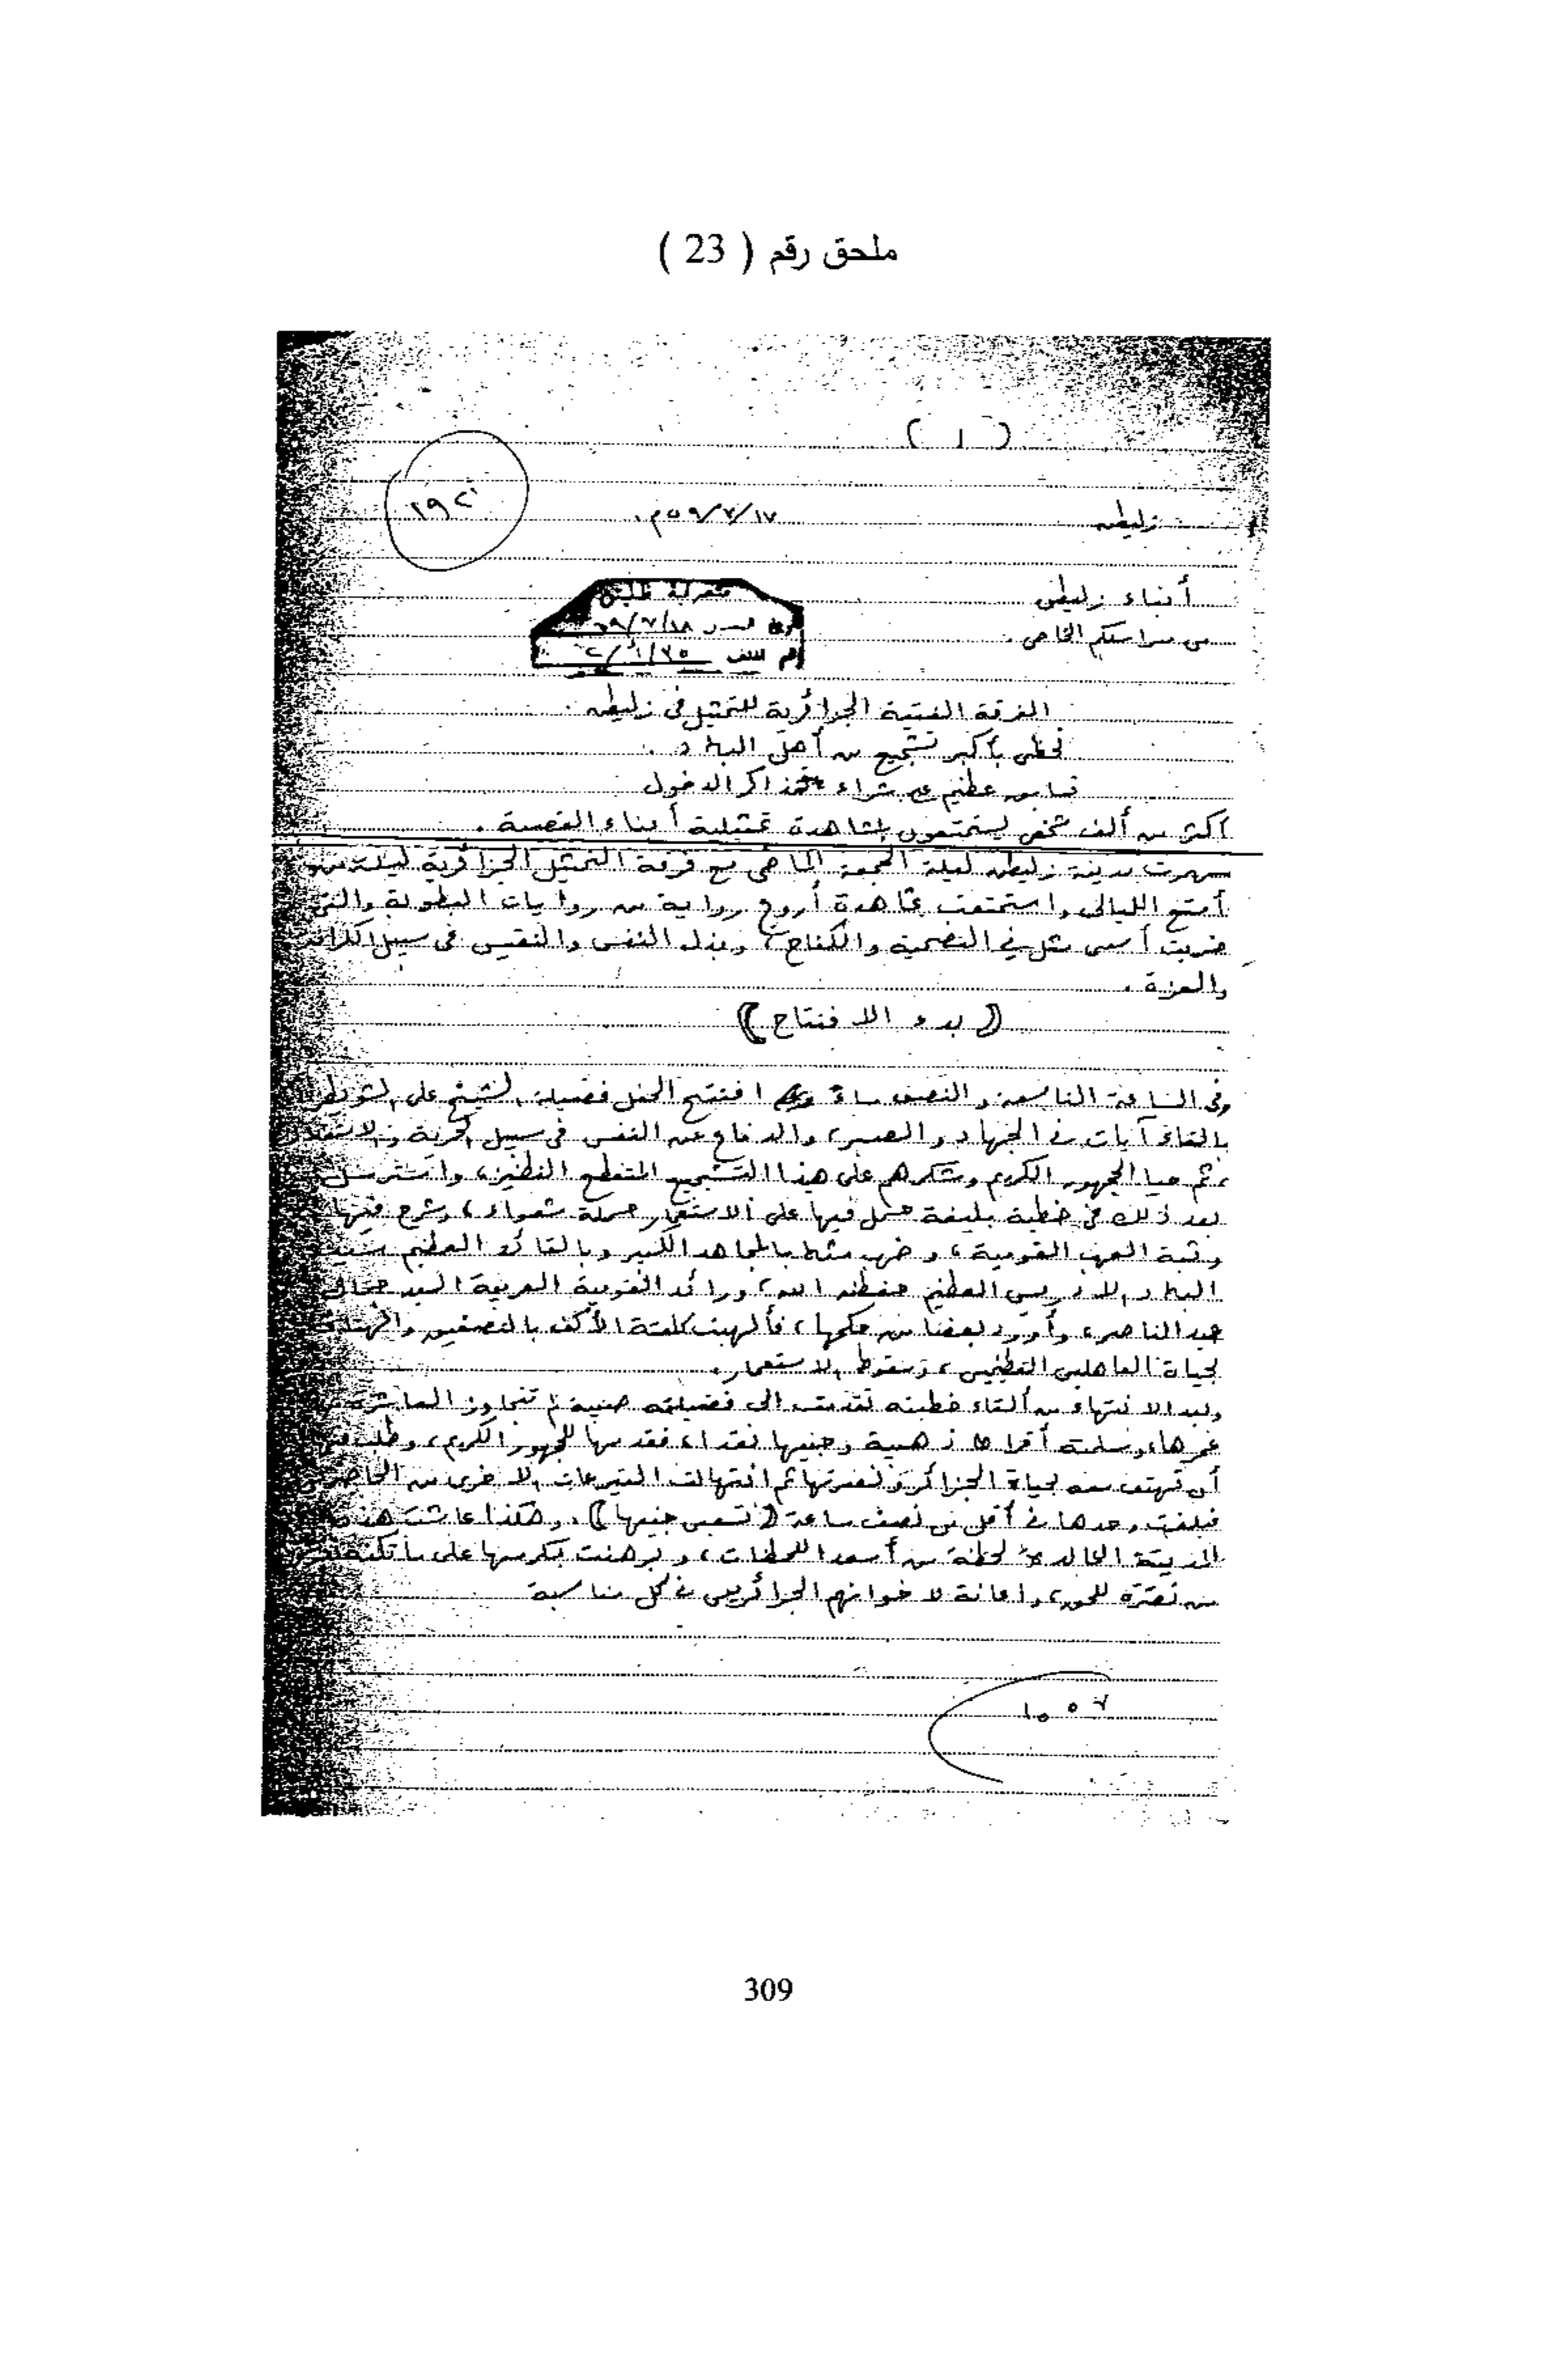 ملحق رقم ( 23 )
( ١ )
زليطن ١٧/٧/٥٩م.
٢٩٢
أنباء زليطن
من مراسلكم الخاص .
متصرفية
رقم الملف
الفرقة الفنية الجزائرية للتمثيل في زليطن .
تحظى بأكبر تشجيع من أهل البلاد .
تسابق عظيم على شراء تذاكر الدخول
أكثر من ألف شخص يستمتعون بمشاهدة تمثيلية أبناء القصبة .
سهرت مدينة زليطن ليلة الجمعة الماضي مع فرقة التمثيل الجزائرية ليلة من
أمتع الليالي واستمتعت بمشاهدة أروع رواية من روايات البطولة والتي
ضربت أسمى مثل في التضحية والكفاح ، وبذل النفس والنفيس في سبيل الكرامة
والعزة .
(( بدء الافتتاح ))
وفي الساعة التاسعة والنصف مساءً افتتح الحفل فضيلة الشيخ على
بالقاء آيات في الجهاد والصبر ، والدفاع عن النفس في سبيل الحرية والاستقلال
، ثم حيا الجمهور الكريم وشكرهم على هذا التشجيع المنقطع النظير ، واسترسل
بعد ذلك في خطبة بليغة حمل فيها على الاستعمار حملة شعواء ، وشرح فيها
وثبة العرب القومية ، وضرب مثلا بالمجاهد الكبير وبالقائد العظيم
البلاد ادريس العظيم حفظه الله ، ورائد القومية العربية السيد جمال
عبد الناصر ، وأورد بعضا من حكمها ، فألهبت كلمته الأكف بالتصفيق والهتاف
لحياة العاهلين العظيمين ، وسقوط الاستعمار .
وبعد الانتهاء من ألقاء خطبته تقدمت الى فضيلته صبية لم تتجاوز العاشرة من
عمرها وسلمته أقراطا ذهبية وجنيها نقدا ، فقدمها للجمهور الكريم ، وطلب
أن تهتف معه لحياة الجزائر ونصرتها ثم انهالت التبرعات الاخرى من الحاضرين
فبلغت وحدها في أقل من نصف ساعة (( تسعين جنيها )) . وهكذا عاشت هذه
المدينة الخالدة لحظة من أسعد اللحظات ، وبرهنت بكرمها على ما تكنه
من نصرة للحق ، واعانة لاخوانهم الجزائريين في كل مناسبة
١٠٥٧
309